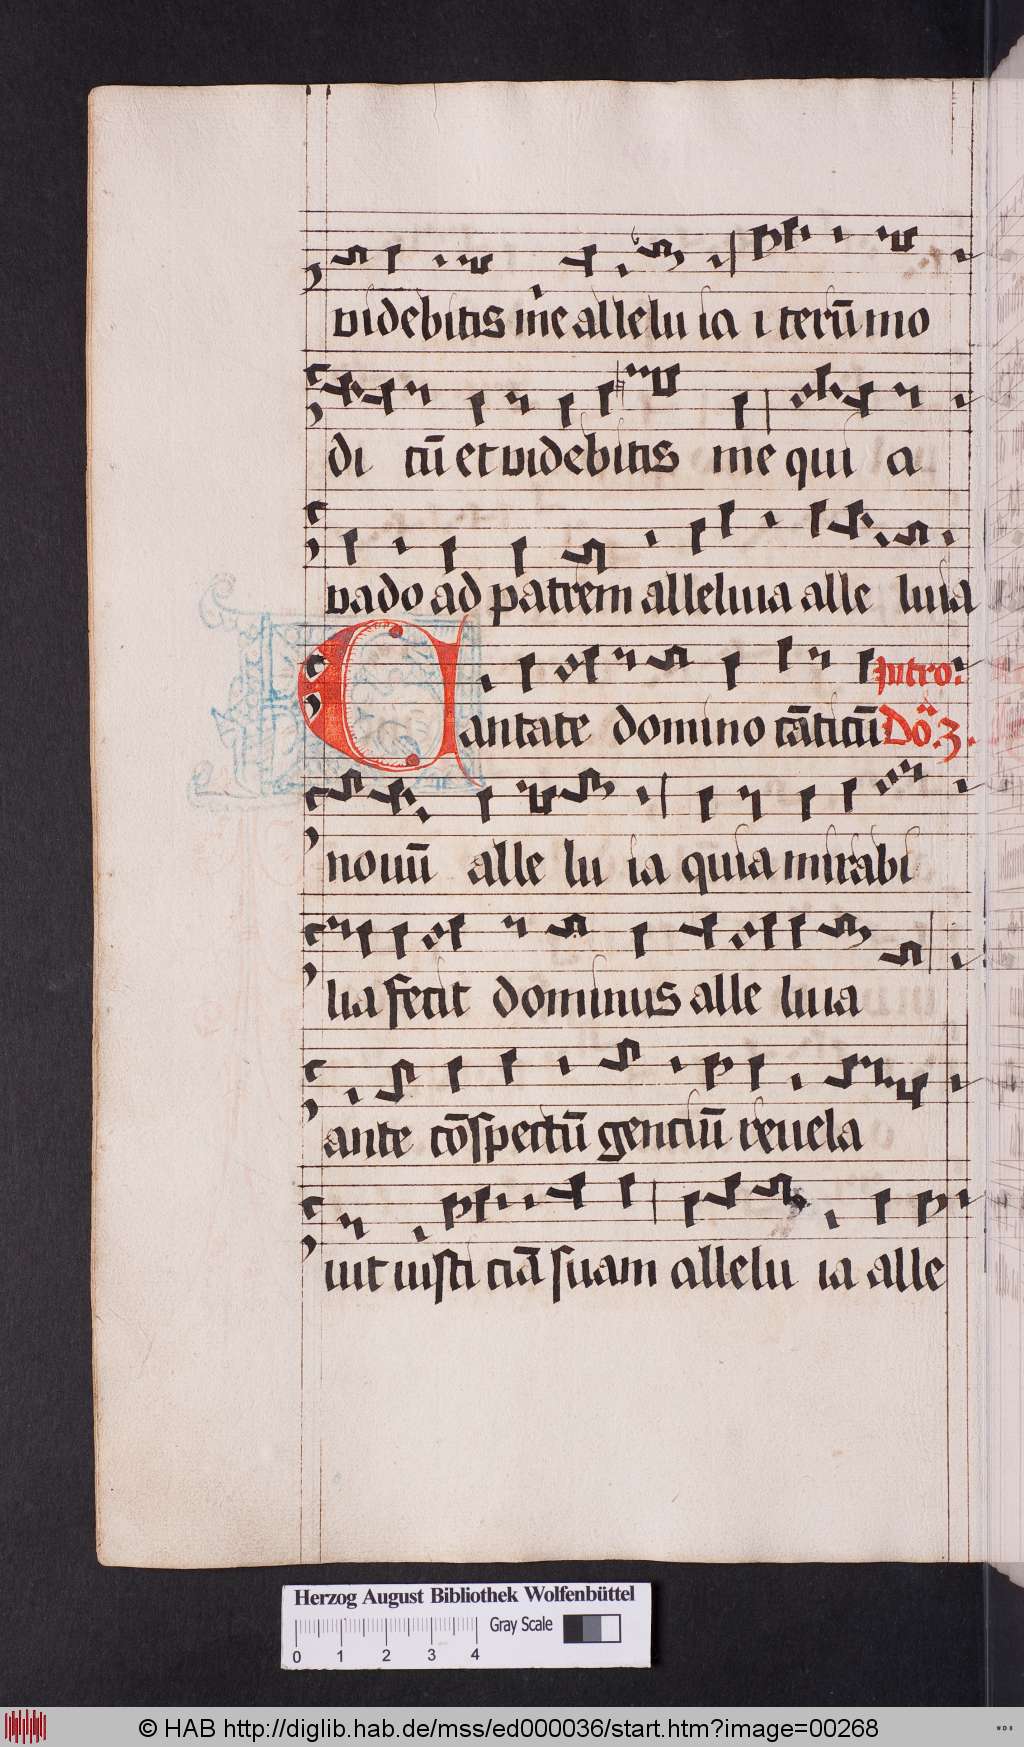 videbitis me allelu ia i terū mo
di cū et videbitis me qui a
vado ad patrem alleluia alle luia
Intro:
Cantate domino cāticū Dō. 3.
nouū alle lu ia quia mirabi
lia fecit dominus alle luia
ante cōspectū gentiū reuela
uit iusti ciā suam allelu ia alle
Herzog August Bibliothek Wolfenbüttel
Gray Scale
0 1 2 3 4
© HAB http://diglib.hab.de/mss/ed000036/start.htm?image=00268